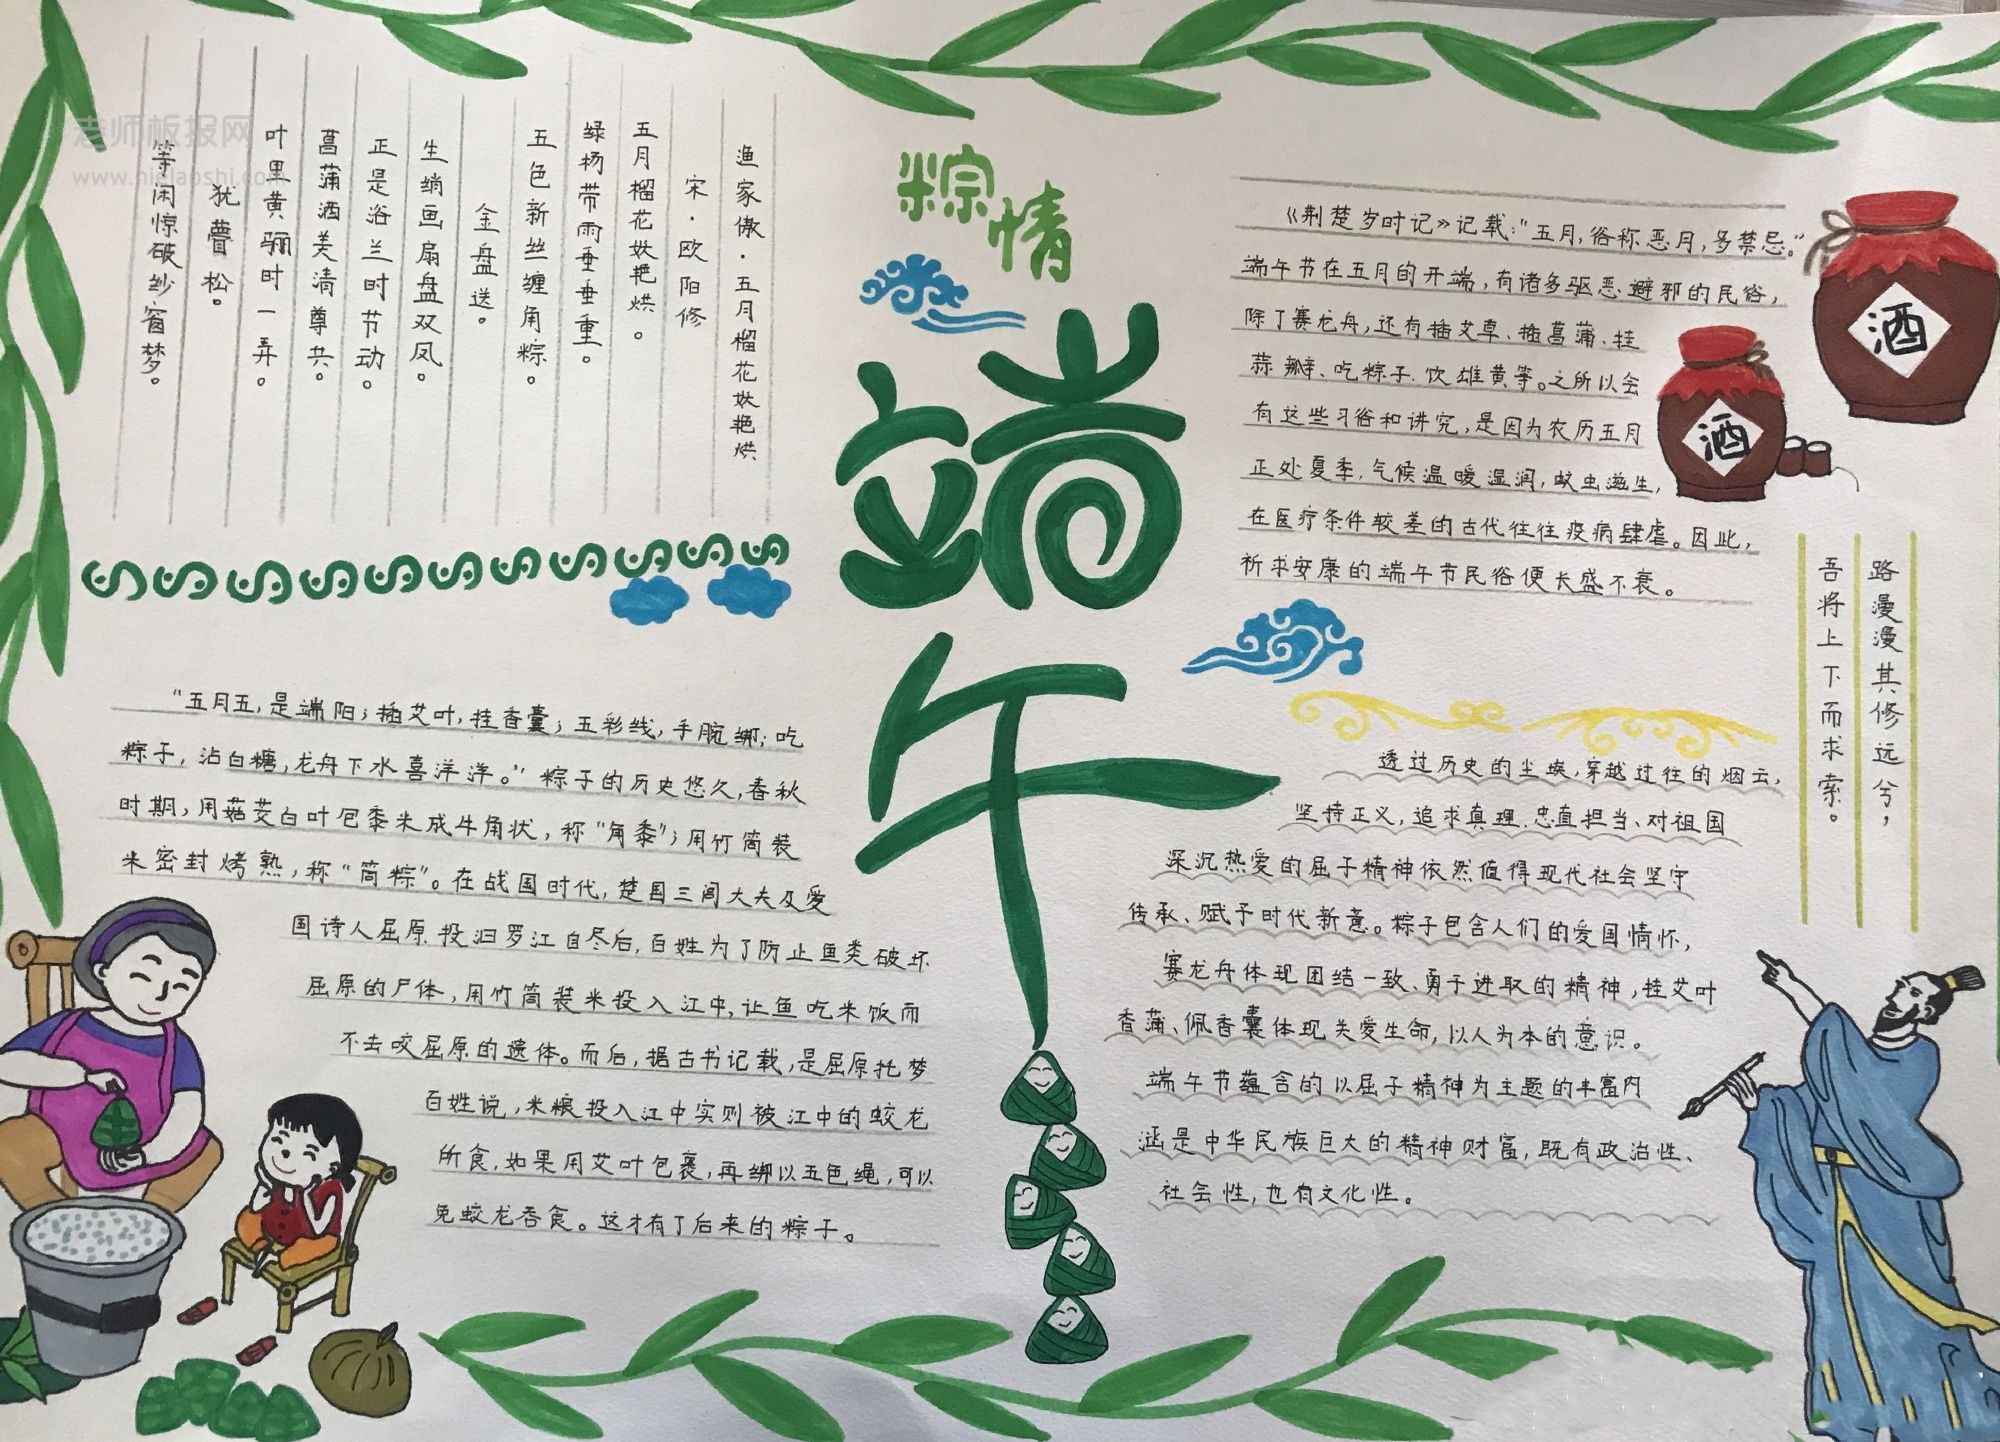 老师板报网
渔家傲·五月榴花妖艳烘
宋·欧阳修
五月榴花妖艳烘。
绿杨带雨垂垂重。
五色新丝缠角粽。
金盘送。
生绡画扇盘双凤。
正是浴兰时节动。
菖蒲酒美清尊共。
叶里黄骊时一弄。
犹瞢松。
等闲惊破纱窗梦。
粽情
端午
《荆楚岁时记》记载:“五月,俗称恶月,多禁忌。”
端午节在五月的开端,有诸多驱恶避邪的民俗,
除了赛龙舟,还有插艾草、插菖蒲、挂
蒜瓣、吃粽子、饮雄黄等。之所以会
有这些习俗和讲究,是因为农历五月
正处夏季,气候温暖湿润,蚊虫滋生,
在医疗条件较差的古代往往疫病肆虐。因此,
祈求安康的端午节民俗便长盛不衰。
酒
酒
路漫漫其修远兮,
吾将上下而求索。
“五月五,是端阳;插艾叶,挂香囊;五彩线,手腕绑;吃
粽子,沾白糖,龙舟下水喜洋洋。”粽子的历史悠久,春秋
时期,用菇艾白叶包黍米成牛角状,称“角黍”;用竹筒装
米密封烤熟,称“筒粽”。在战国时代,楚国三闾大夫及爱
国诗人屈原投汨罗江自尽后,百姓为了防止鱼类破坏
屈原的尸体,用竹筒装米投入江中,让鱼吃米饭而
不去咬屈原的遗体。而后,据古书记载,是屈原托梦
百姓说,米粮投入江中实则被江中的蛟龙
所食,如果用艾叶包裹,再绑以五色绳,可以
免蛟龙吞食。这才有了后来的粽子。
透过历史的尘埃,穿越过往的烟云,
坚持正义,追求真理、忠直担当、对祖国
深沉热爱的屈子精神依然值得现代社会坚守
传承、赋予时代新意。粽子包含人们的爱国情怀,
赛龙舟体现团结一致、勇于进取的精神,挂艾叶
香蒲、佩香囊体现关爱生命,以人为本的意识。
端午节蕴含的以屈子精神为主题的丰富内
涵是中华民族巨大的精神财富,既有政治性、
社会性,也有文化性。